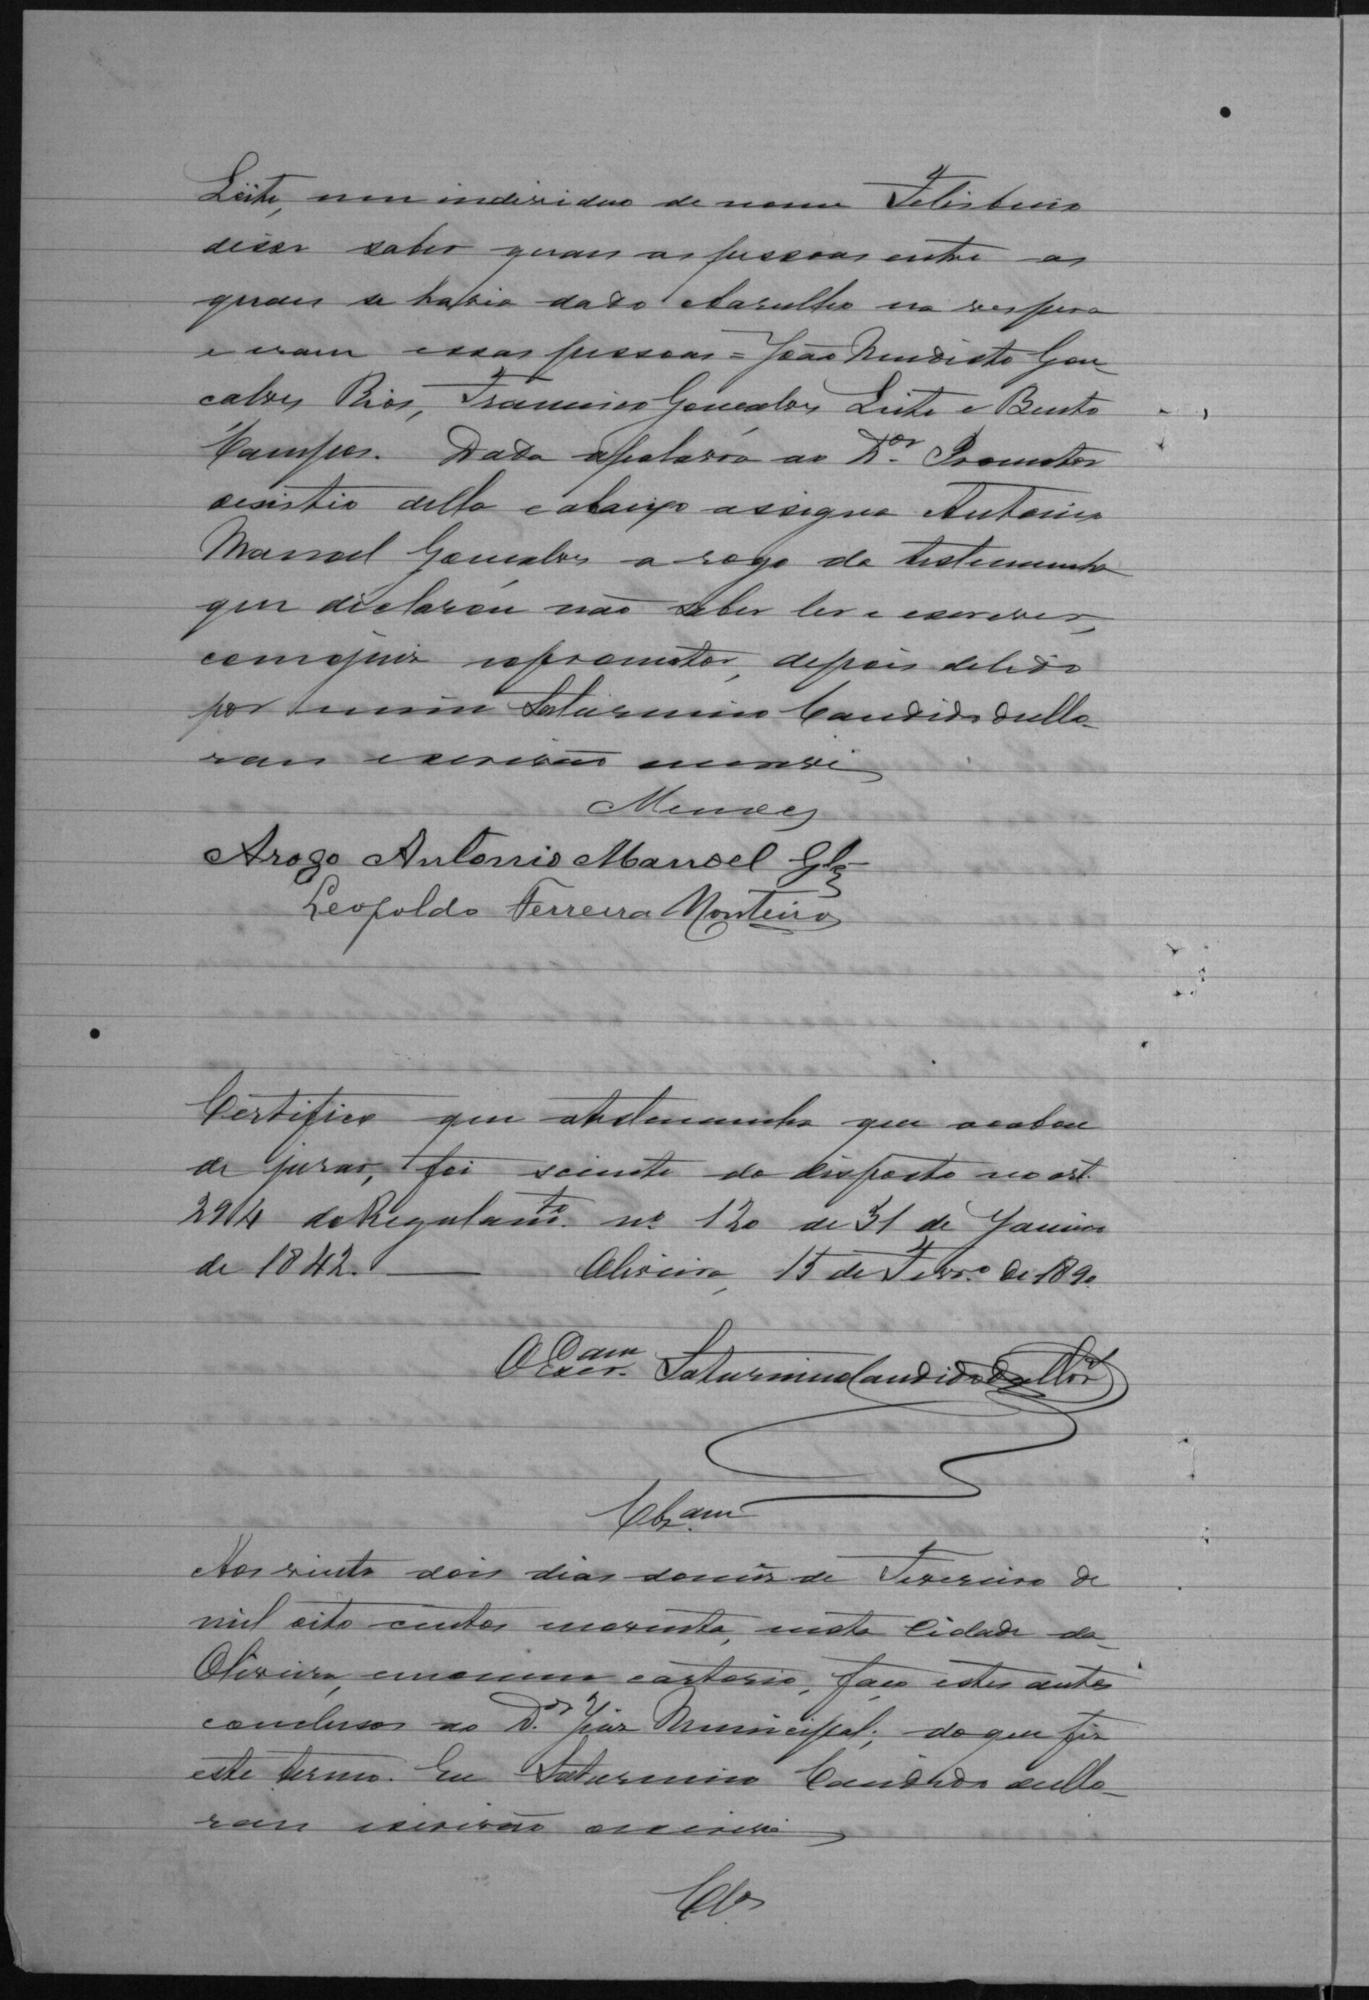 Leite, um individuo de nome Felisbino
disse saber quaes as pessoas entre as
quaes se havia dado obarulho na vespera
e eram essas pessoas = João Benedicto Gon-
çalves Rios, Francisco Gonçalves Leite e Bento
Campos. Dada apalavra ao Dor. Promotor
desistio della e abaixo assigna Antonio
Manoel Gonçalves a rogo da testemunha
que declarou não saber ler e escrever,
com o juiz e o promotor, depois de lido
por mim Saturnino Candido
escrivão escrevi
Mendes
Arogo Antonio Manoel Glz
Leopoldo Ferreira Monteiro
Certifico que atestemunha que acabou
de jurar, foi sciente do disposto no art.
294 do Regulamto. nº 120 de 31 de Janeiro
de 1842. — Oliveira, 15 de Fevro. de 1890
O Saturnino Candido
Clsam
Aos vinte dois dias do mez de Fevereiro de
mil oito centos noventa, nesta Cidade da
Oliveira, em o meu cartorio, faço estes autos
conclusos ao Dor. Juiz Municipal; do que fiz
este termo. Eu Saturnino Candido
escrivão escrevi
Cls